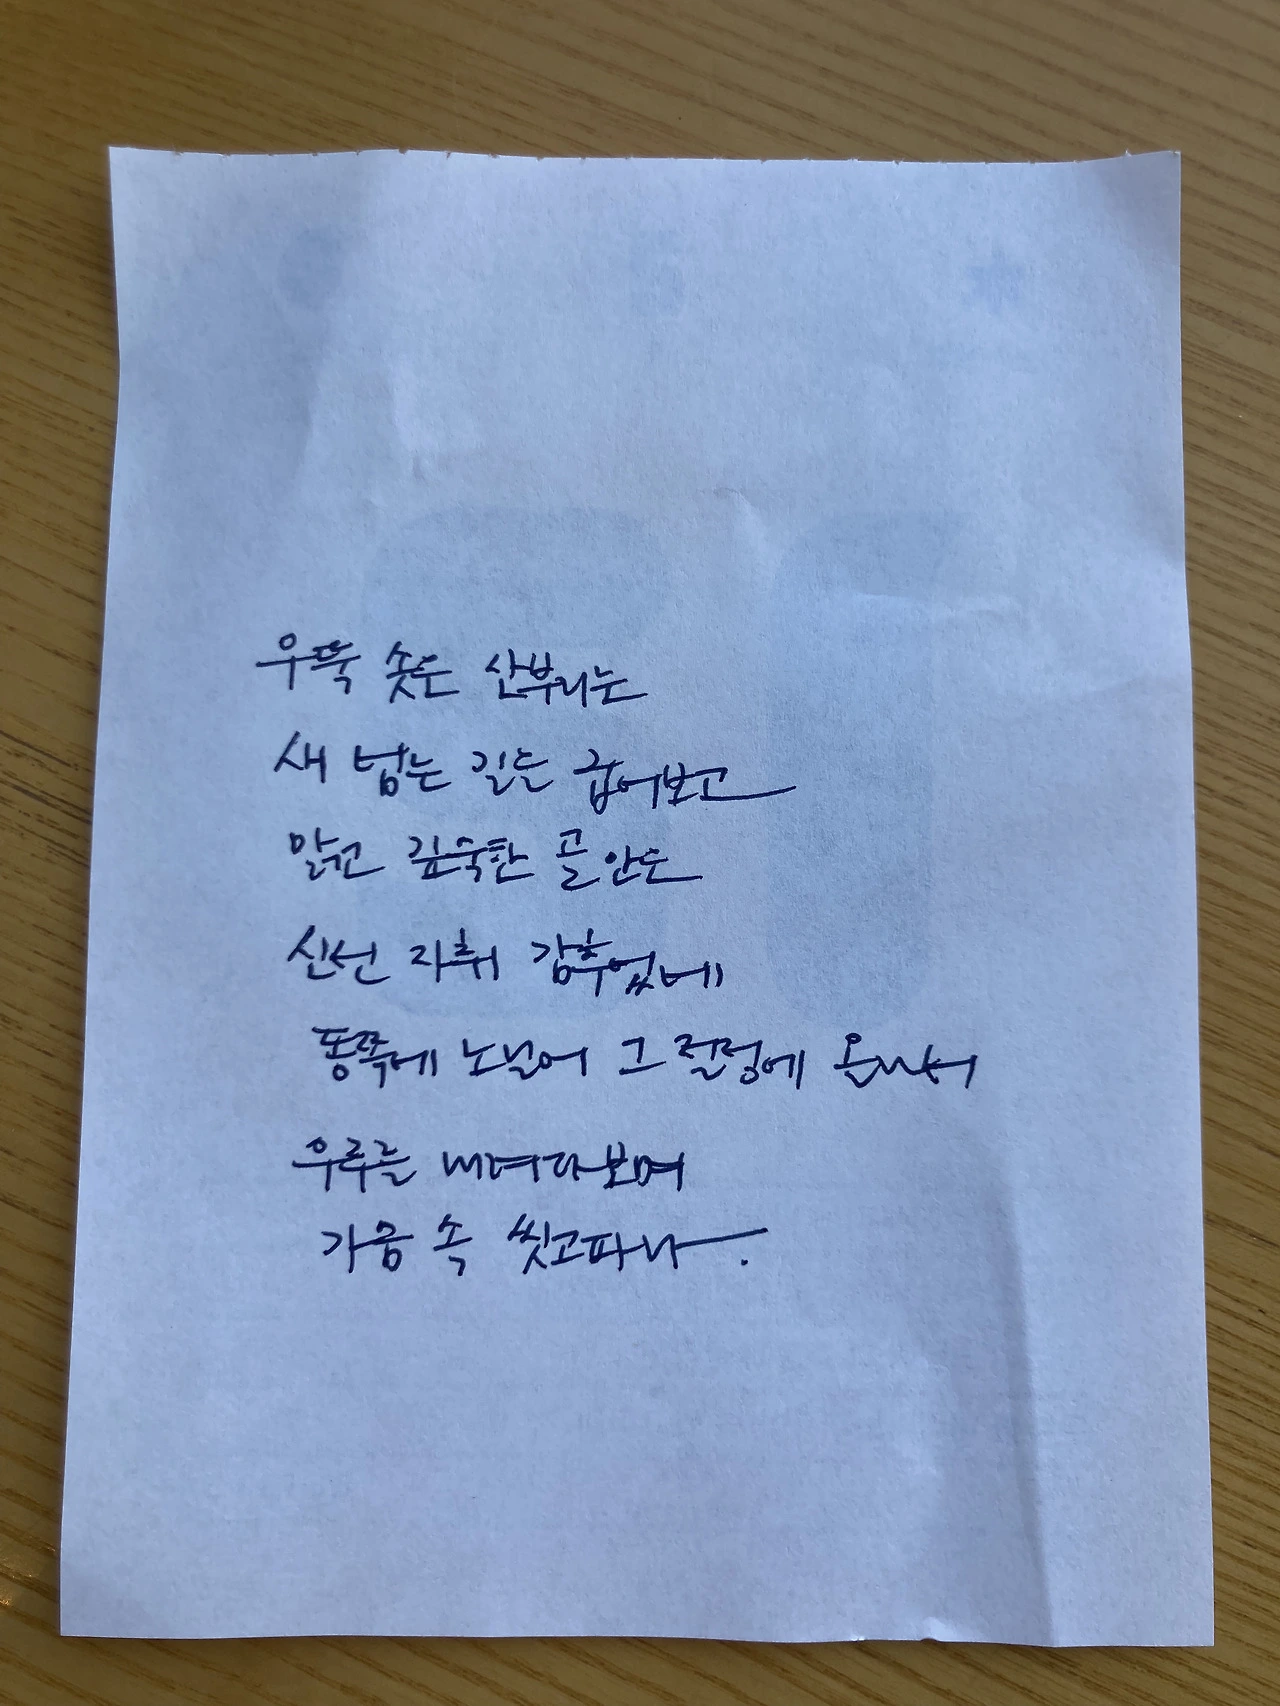 우뚝 솟은 산부리는
새 넘는 길을 굽어보고
맑고 깊숙한 골 안도
신선 자취 감추었네
동쪽에 노닐어 그 절정에 올라서
우주를 내려다보며
가슴 속 씻고파라.